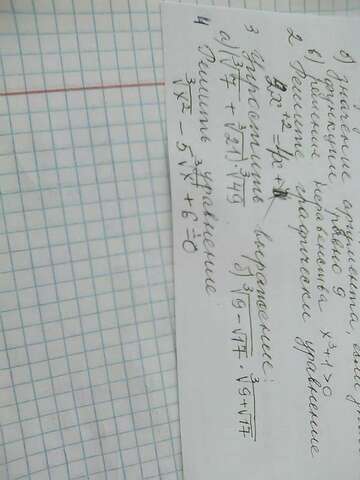 б) значение аргумента, если
функции равно 9
в) решение неравенства x³+1>0
2 Решите графически уравнение
x+2=
3 Упростить выражение:
а) (∛7 + ∛21)·∛49 б) ∛9-√17 · ∛9+√17
4 Решить уравнение
∛x² - 5∛x + 6=0